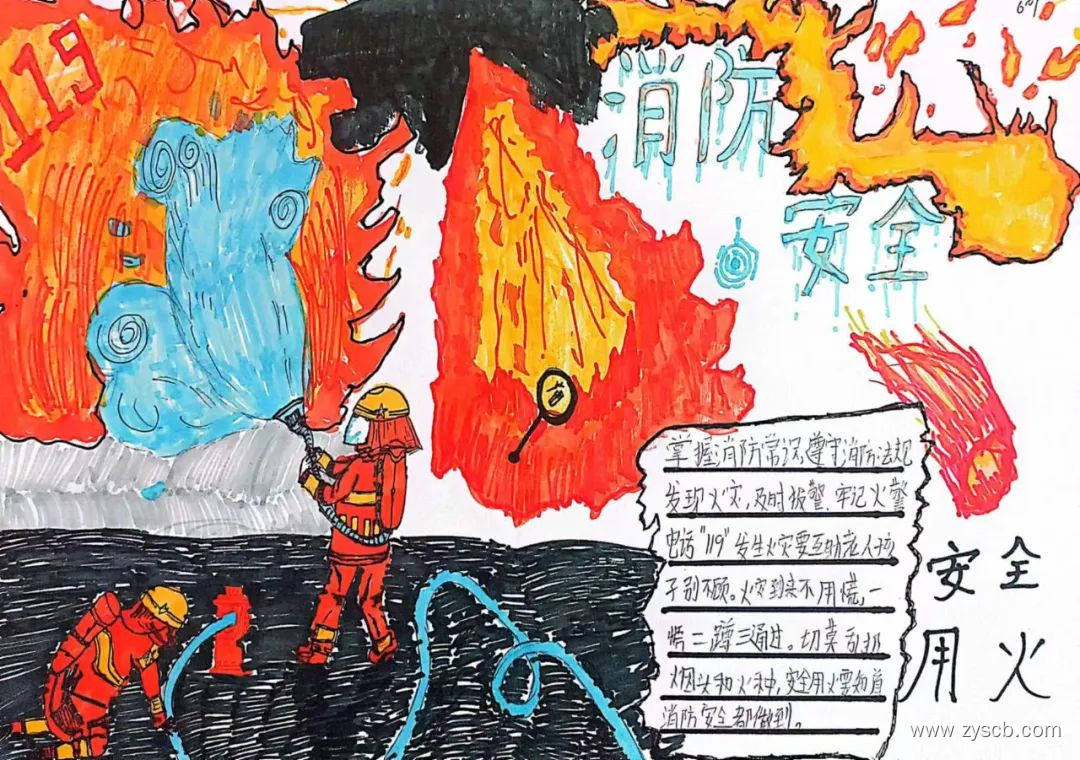 119
消防
安全
掌握消防常识,遵守消防法规
发现火灾,及时报警,牢记火警
电话"119"发生火灾要互助老人孩
子别不顾。火灾到来不用慌,一
慌二蹲三通过。切莫乱扔
烟头和火种,安全用火要知道
消防安全都做到。
安全
用火
www.zyscb.com